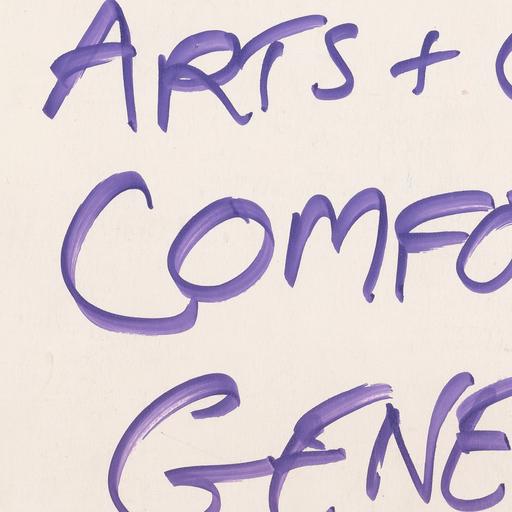 ARTS + C
COMFO
GENE